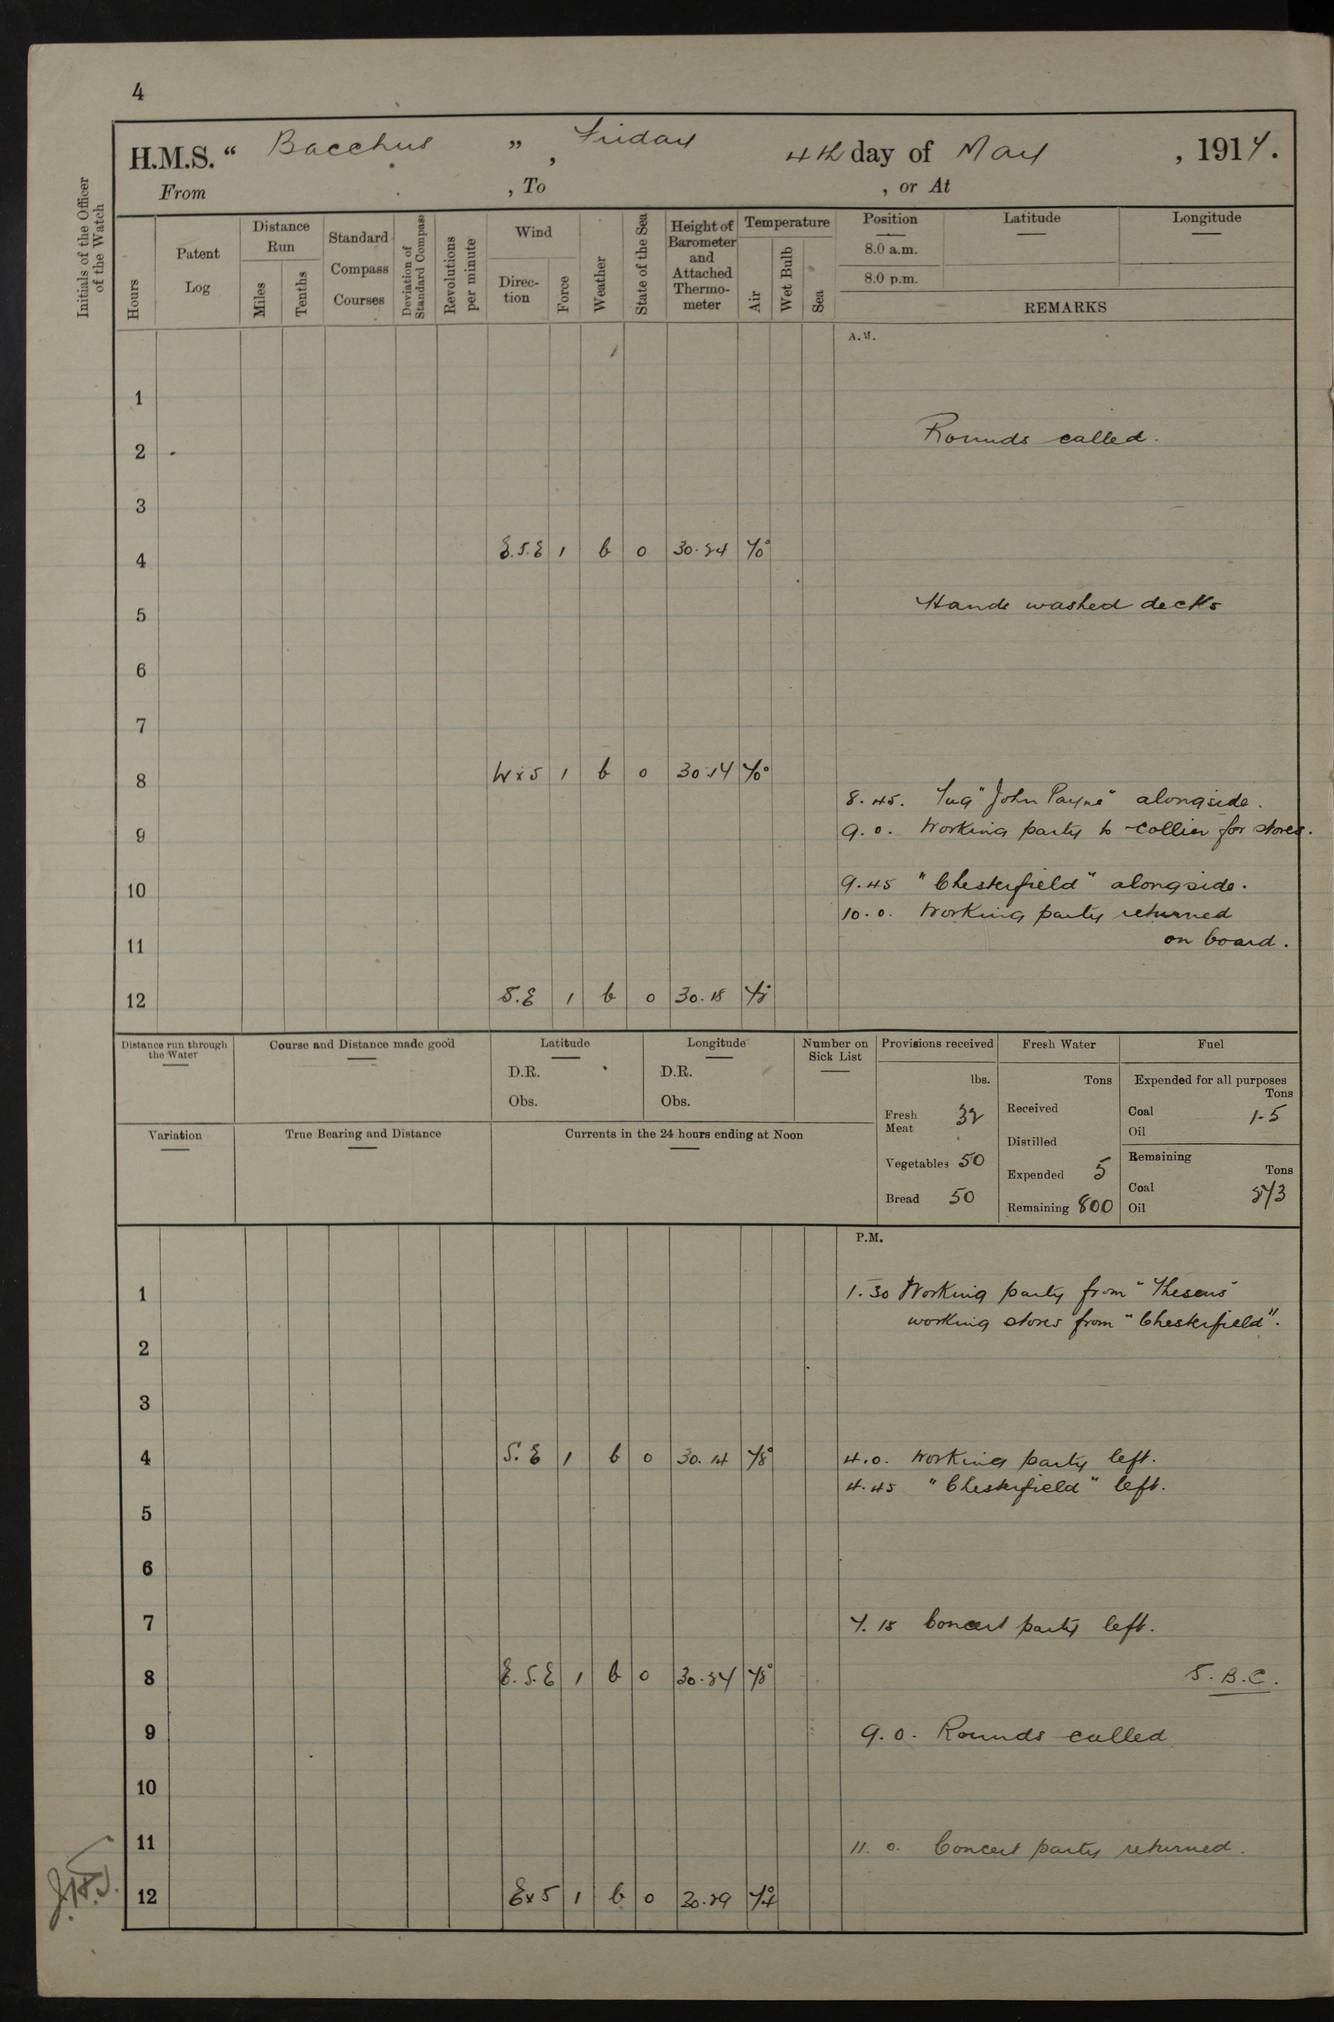 4
H.M.S. “ Bacchus ”, Friday 4th day of May , 1917.
From , To , or At
Initials of the Officer of the Watch
Hours
Patent Log
Distance Run
Miles
Tenths
Standard Compass Courses
Deviation of Standard Compass
Revolutions per minute
Wind
Direc-tion
Force
Weather
State of the Sea
Height of Barometer and Attached Thermo-meter
Temperature
Air
Wet Bulb
Sea
Position Latitude Longitude
8.0 a.m.
8.0 p.m.
REMARKS
A.M.
1
Rounds called.
2
3
4 E.S.E 1 b o 30.24 70°
Hands washed decks
5
6
7
8 W x S 1 b o 30.14 70°
8.45. Tug "John Payne" alongside.
9 9.0. Working party to collier for stores.
10 9.45 "Chesterfield" alongside.
10.0. Working party returned
11 on board.
12 S.E 1 b o 30.18
Distance run through the Water
Course and Distance made good
Latitude
D.R.
Obs.
Longitude
D.R.
Obs.
Number on Sick List
Provisions received
lbs.
Fresh Meat 32
Vegetables 50
Bread 50
Fresh Water
Tons
Received
Distilled
Expended 5
Remaining 800
Fuel
Expended for all purposes
Tons
Coal 1.5
Oil
Remaining
Tons
Coal 873
Oil
Variation
True Bearing and Distance
Currents in the 24 hours ending at Noon
P.M.
1 1.30 Working party from "Theseus"
working stores from "Chesterfield".
2
3
4 S.E 1 b o 30.14 78° 4.0. Working party left.
4.45 "Chesterfield" left.
5
6
7 7.15 Concert party left.
8 E.S.E 1 b o 30.24 75° S.B.C.
9 9.0. Rounds called
10
11 11.0. Concert party returned.
12 E x S 1 b o 30.29 74°